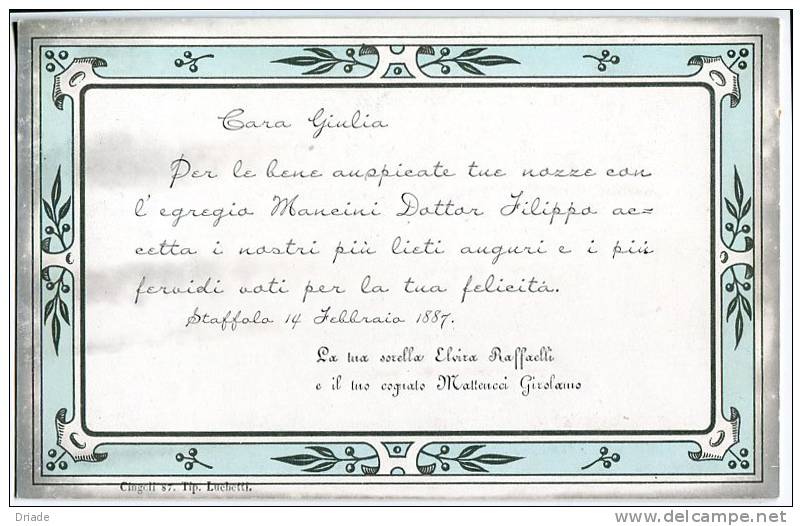 Cara Giulia
Per le bene auspicate tue nozze con
l'egregio Mancini Dottor Filippo ac=
cetta i nostri più lieti auguri e i più
fervidi voti per la tua felicità.
Staffolo 14 Febbraio 1887.
La tua sorella Elvira Raffaelli
e il tuo cognato Matteucci Girolamo
Cingoli 87. Tip. Luchetti.
© Driade
www.delcampe.net